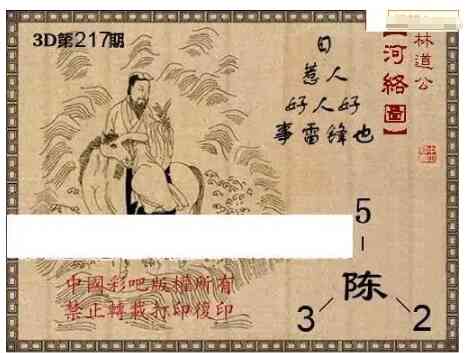 3D第217期
林道公
【河络圖】
日
惹人
好人好
事雷鋒也
5
陈
3 2
中國彩吧版權所有
禁止轉載打印復印